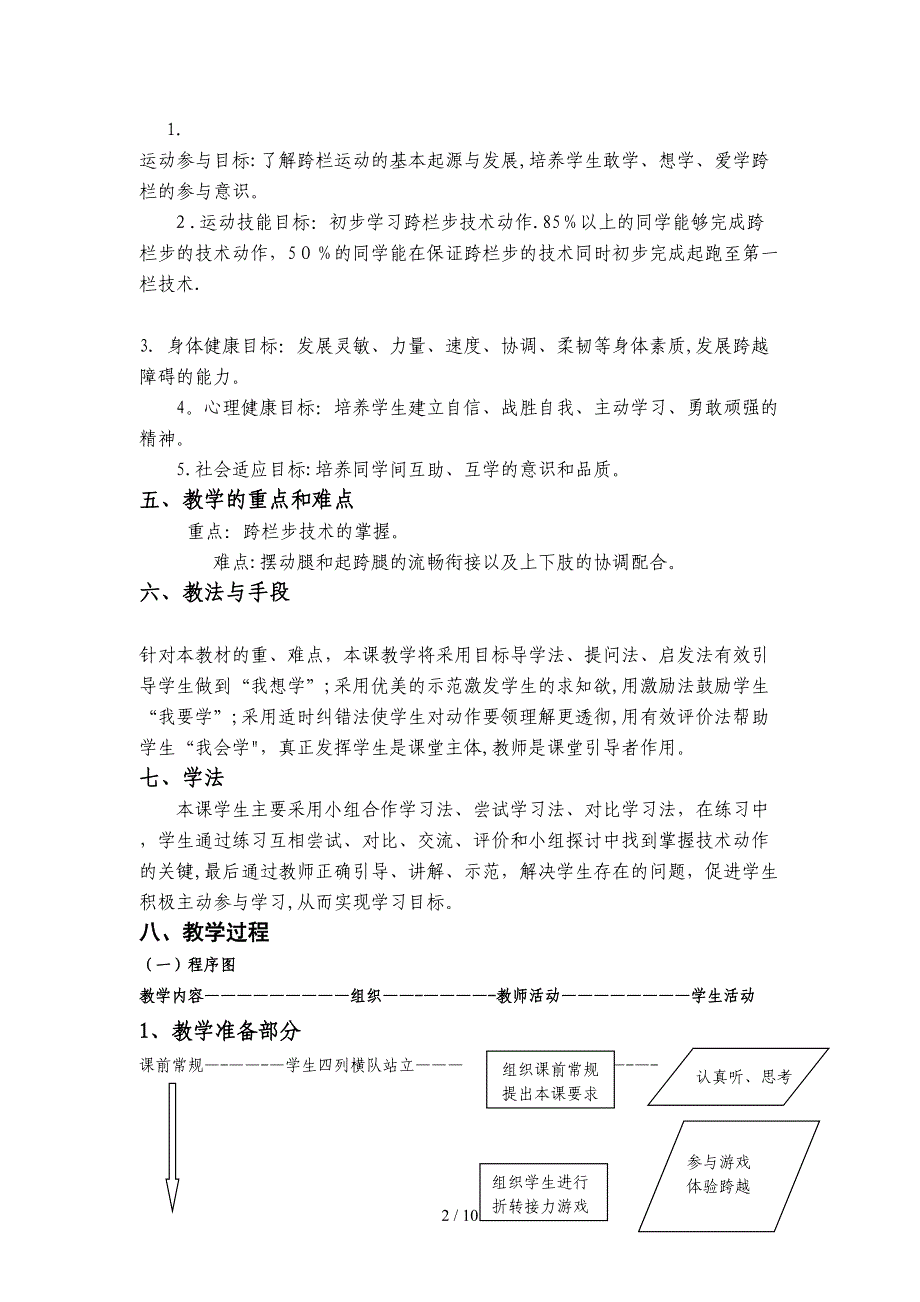 1.
运动参与目标:了解跨栏运动的基本起源与发展,培养学生敢学、想学、爱学跨
栏的参与意识。
2．运动技能目标：初步学习跨栏步技术动作.85%以上的同学能够完成跨
栏步的技术动作，5０％的同学能在保证跨栏步的技术同时初步完成起跑至第一
栏技术.
3. 身体健康目标：发展灵敏、力量、速度、协调、柔韧等身体素质,发展跨越
障碍的能力。
4。心理健康目标：培养学生建立自信、战胜自我、主动学习、勇敢顽强的
精神。
5.社会适应目标:培养同学间互助、互学的意识和品质。
五、教学的重点和难点
重点：跨栏步技术的掌握。
难点:摆动腿和起跨腿的流畅衔接以及上下肢的协调配合。
六、教法与手段
针对本教材的重、难点，本课教学将采用目标导学法、提问法、启发法有效引
导学生做到“我想学”;采用优美的示范激发学生的求知欲,用激励法鼓励学生
“我要学”;采用适时纠错法使学生对动作要领理解更透彻,用有效评价法帮助
学生“我会学"，真正发挥学生是课堂主体,教师是课堂引导者作用。
七、学法
本课学生主要采用小组合作学习法、尝试学习法、对比学习法，在练习中
，学生通过练习互相尝试、对比、交流、评价和小组探讨中找到掌握技术动作
的关键,最后通过教师正确引导、讲解、示范，解决学生存在的问题，促进学生
积极主动参与学习,从而实现学习目标。
八、教学过程
（一）程序图
教学内容—————————组织——-————-教师活动————————学生活动
1、教学准备部分
课前常规—-———学生四列横队站立———
组织课前常规
提出本课要求
—-—
认真听、思考
参与游戏
体验跨越
组织学生进行
折转接力游戏
2 / 10